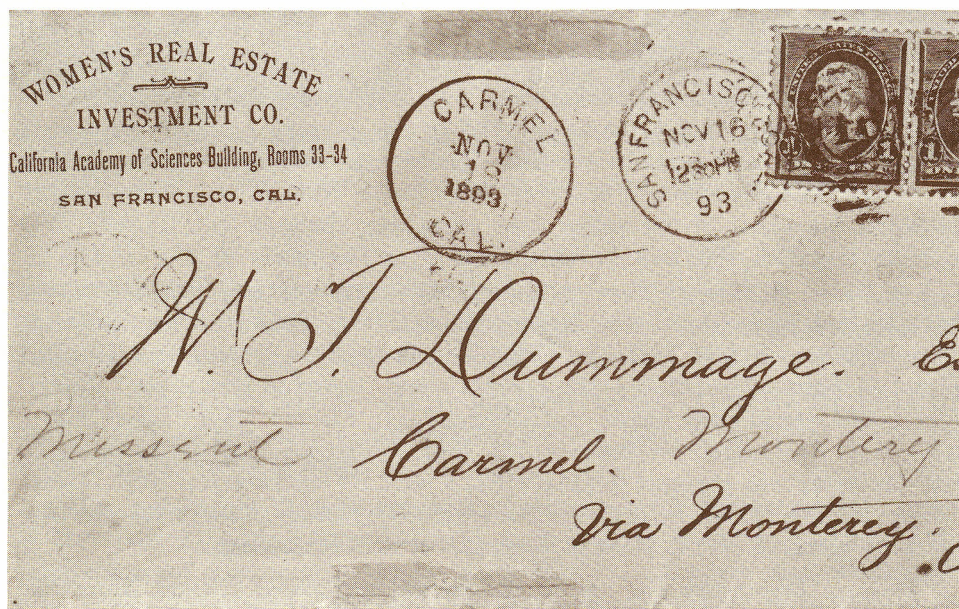 WOMEN'S REAL ESTATE
INVESTMENT CO.
California Academy of Sciences Building, Rooms 33-34
SAN FRANCISCO, CAL.
CARMEL
NOV
1893
CAL.
SAN FRANCISCO
NOV 16
12 30 PM
93
1
1
W. T. Dummage.
Missent
Carmel. Monterey
Via Monterey.